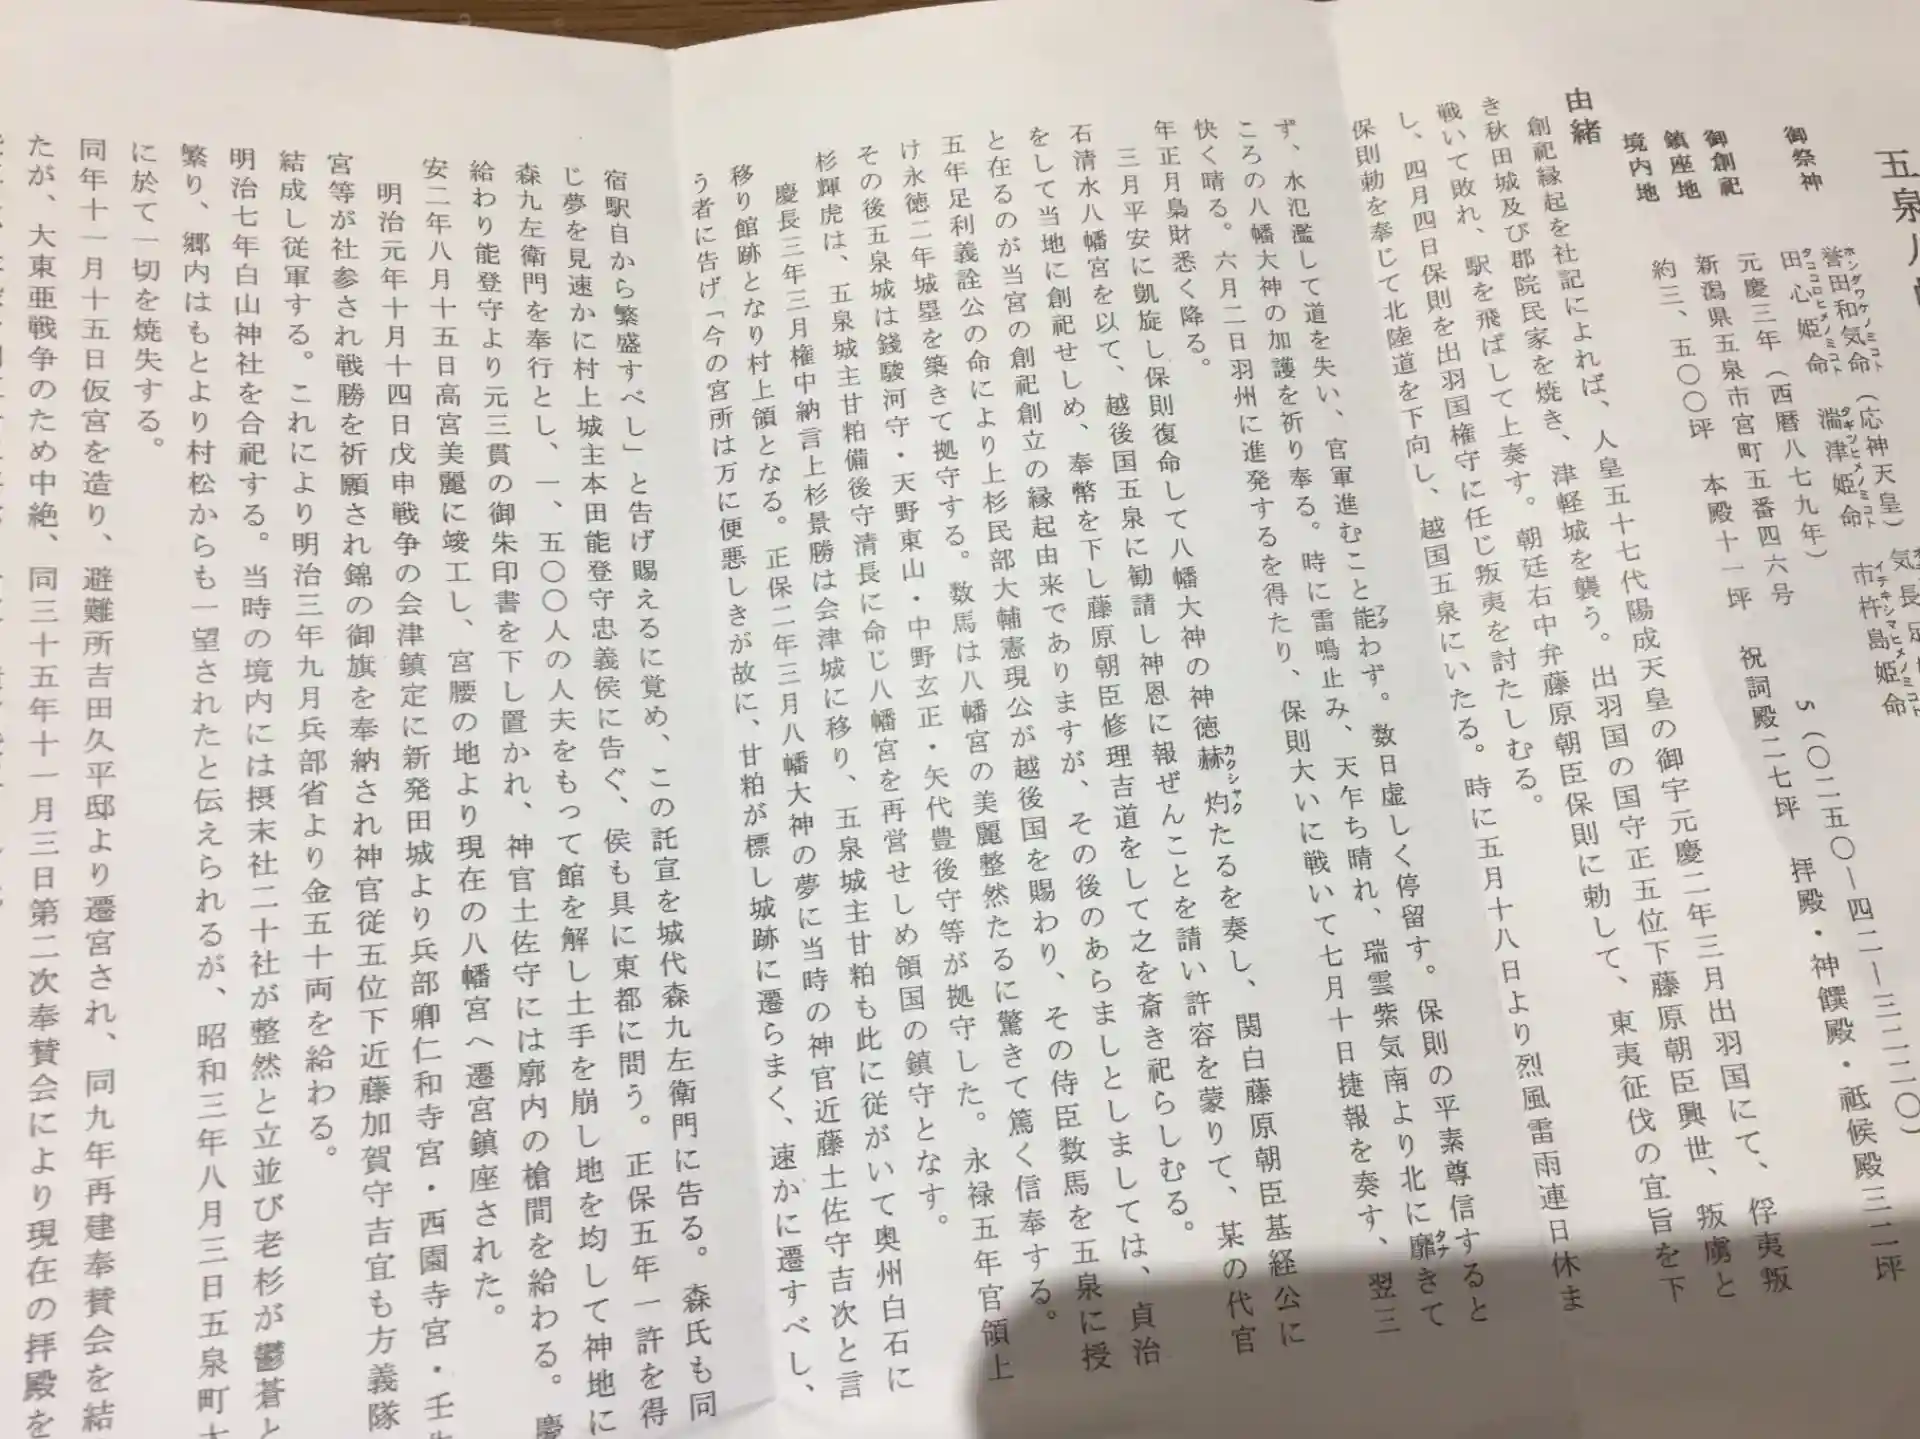 五泉八
御祭神
誉田和気命（応神天皇）
ホンダワケノミコト
気長足
田心姫命　湍津姫命　市杵島姫命
タゴコロヒメノミコト　タギツヒメノミコト　イチキシマヒメノミコト
御創祀　元慶三年（西暦八七九年）
鎮座地　新潟県五泉市宮町五番四六号　℡（〇二五〇―四二―三二二〇）
境内地　約三、五〇〇坪　本殿十一坪　祝詞殿二七坪　拝殿・神饌殿・祗候殿三二坪
由緒
創祀縁起を社記によれば、人皇五十七代陽成天皇の御宇元慶二年三月出羽国にて、俘夷叛
き秋田城及び郡院民家を焼き、津軽城を襲う。出羽国の国守正五位下藤原朝臣興世、叛虜と
戦いて敗れ、駅を飛ばして上奏す。朝廷右中弁藤原朝臣保則に勅して、東夷征伐の宜旨を下
し、四月四日保則を出羽国権守に任じ叛夷を討たしむる。
保則勅を奉じて北陸道を下向し、越国五泉にいたる。時に五月十八日より烈風雷雨連日休ま
ず、水氾濫して道を失い、官軍進むこと能わず。数日虚しく停留す。保則の平素尊信すると
ころの八幡大神の加護を祈り奉る。時に雷鳴止み、天乍ち晴れ、瑞雲紫気南より北に靡きて
快く晴る。六月二日羽州に進発するを得たり、保則大いに戦いて七月十日捷報を奏す、翌三
年正月梟財悉く降る。
三月平安に凱旋し保則復命して八幡大神の神徳赫灼たるを奏し、関白藤原朝臣基経公に
石清水八幡宮を以て、越後国五泉に勧請し神恩に報ぜんことを請い許容を蒙りて、某の代官
をして当地に創祀せしめ、奉幣を下し藤原朝臣修理吉道をして之を斎き祀らしむる。
と在るのが当宮の創祀創立の縁起由来でありますが、その後のあらましとしましては、貞治
五年足利義詮公の命により上杉民部大輔憲現公が越後国を賜わり、その侍臣数馬を五泉に授
け永徳二年城塁を築きて拠守する。数馬は八幡宮の美麗整然たるに驚きて篤く信奉する。
その後五泉城は錢駿河守・天野東山・中野玄正・矢代豊後守等が拠守した。永禄五年官領上
杉輝虎は、五泉城主甘粕備後守清長に命じ八幡宮を再営せしめ領国の鎮守となす。
慶長三年三月権中納言上杉景勝は会津城に移り、五泉城主甘粕も此に従がいて奥州白石に
移り館跡となり村上領となる。正保二年三月八幡大神の夢に当時の神官近藤土佐守吉次と言
う者に告げ「今の宮所は万に便悪しきが故に、甘粕が標し城跡に遷らまく、速かに遷すべし、
宿駅自から繁盛すべし」と告げ賜えるに覚め、この託宣を城代森九左衛門に告る。森氏も同
じ夢を見速かに村上城主本田能登守忠義侯に告ぐ、侯も具に東都に問う。正保五年一許を得
森九左衛門を奉行とし、一、五〇〇人の人夫をもって館を解し土手を崩し地を均して神地に
給わり能登守より元三貫の御朱印書を下し置かれ、神官土佐守には廓内の槍間を給わる。慶
安二年八月十五日高宮美麗に竣工し、宮腰の地より現在の八幡宮へ遷宮鎮座された。
明治元年十月十四日戊申戦争の会津鎮定に新発田城より兵部卿仁和寺宮・西園寺宮・壬生
宮等が社参され戦勝を祈願され錦の御旗を奉納され神官従五位下近藤加賀守吉宜も方義隊
結成し従軍する。これにより明治三年九月兵部省より金五十両を給わる。
明治七年白山神社を合祀する。当時の境内には摂末社二十社が整然と立並び老杉が鬱蒼と
繁り、郷内はもとより村松からも一望されたと伝えられるが、昭和三年八月三日五泉町大
に於て一切を焼失する。
同年十一月十五日仮宮を造り、避難所吉田久平邸より遷宮され、同九年再建奉賛会を結
たが、大東亜戦争のため中絶、同三十五年十一月三日第二次奉賛会により現在の拝殿を